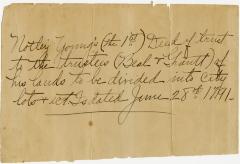 Notley Young's (the 1st) Deed of trust
to the trustees (Beall & Gantt) of
his lands to be divided into city
lots &c &c dated June 28th 1791.